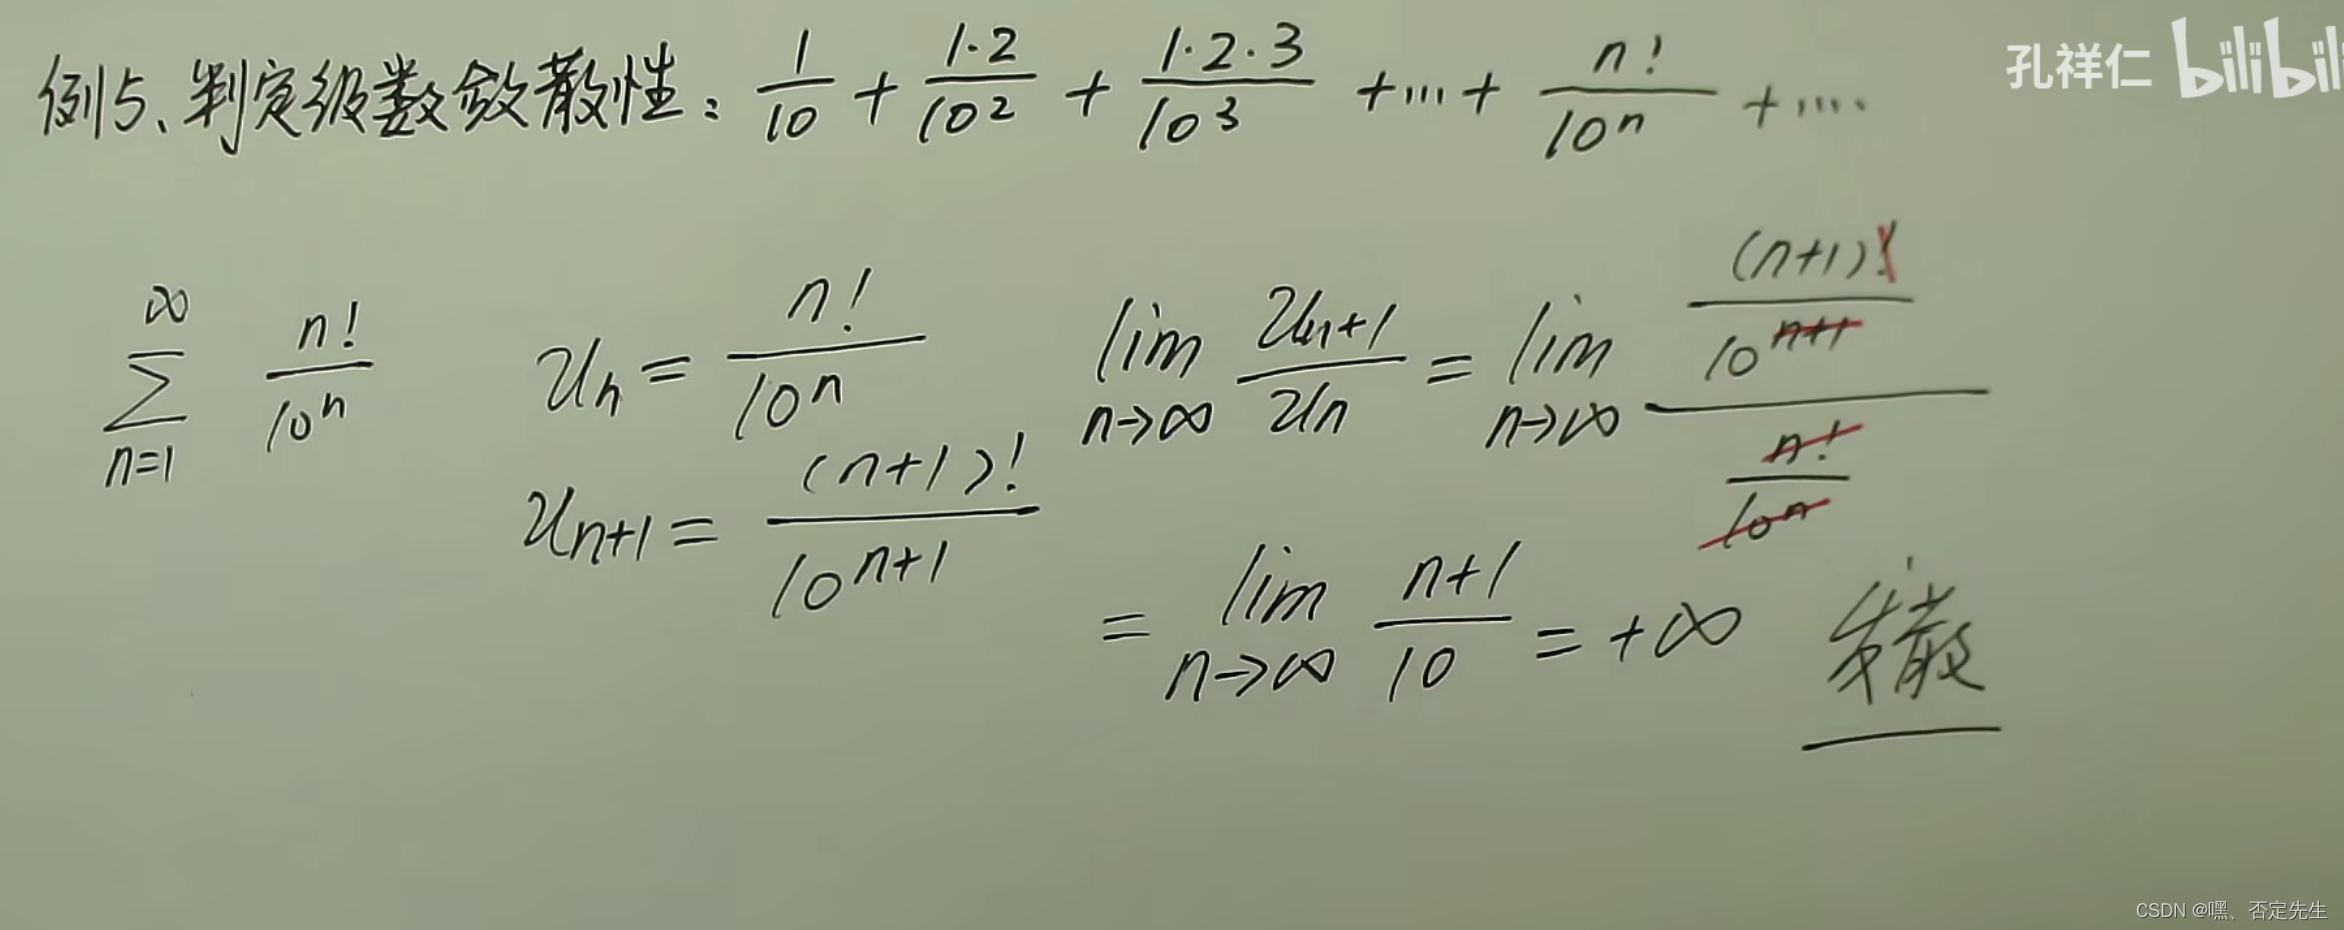 孔祥仁 bilibili
例5、判定级数敛散性：1/10 + 1·2/10² + 1·2·3/10³ +…+ n!/10ⁿ +….
∞∑n=1 n!/10ⁿ
uₙ = n!/10ⁿ
uₙ₊₁ = (n+1)!/10ⁿ⁺¹
lim n→∞ uₙ₊₁/uₙ = lim n→∞ ((n+1)!/10ⁿ⁺¹)/(n!/10ⁿ)
= lim n→∞ (n+1)/10 = +∞ 发散
CSDN @嘿、否定先生